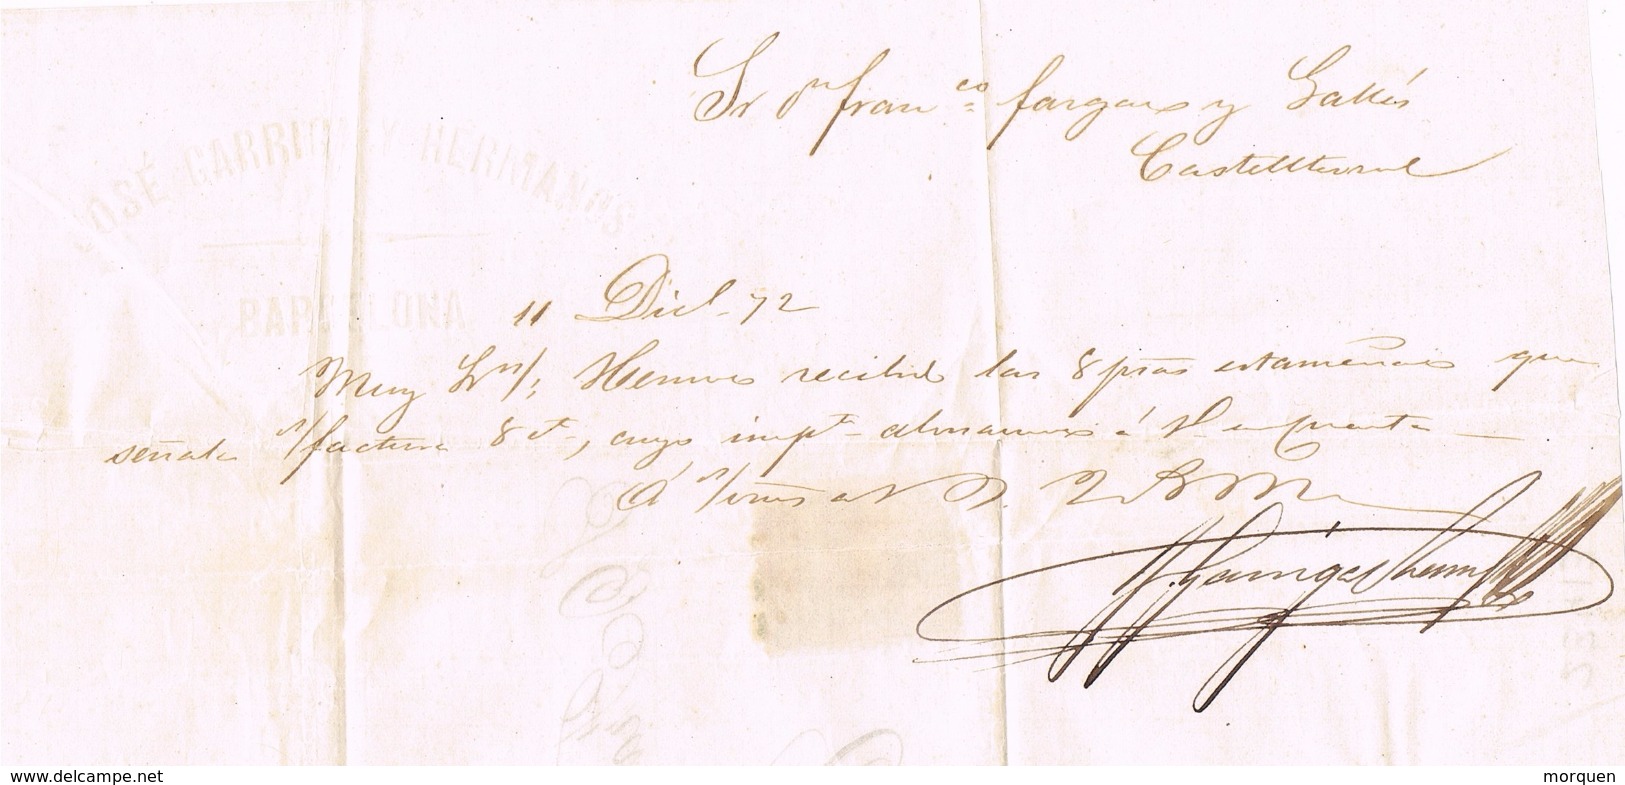 Sr Dn Franco. Fargas y Gallés
Castelltersol
JOSÉ GARRIGA Y HERMANOS
BARCELONA
11 Dicb. 72
Muy Sr n/: Hemos recibido las 8 pzas estameñas que
señala s/factura 8 ct., cuyo impte. abonamos á V. en cuenta
Q. B. S. M.
J. Garriga y herm
www.delcampe.net
morquen